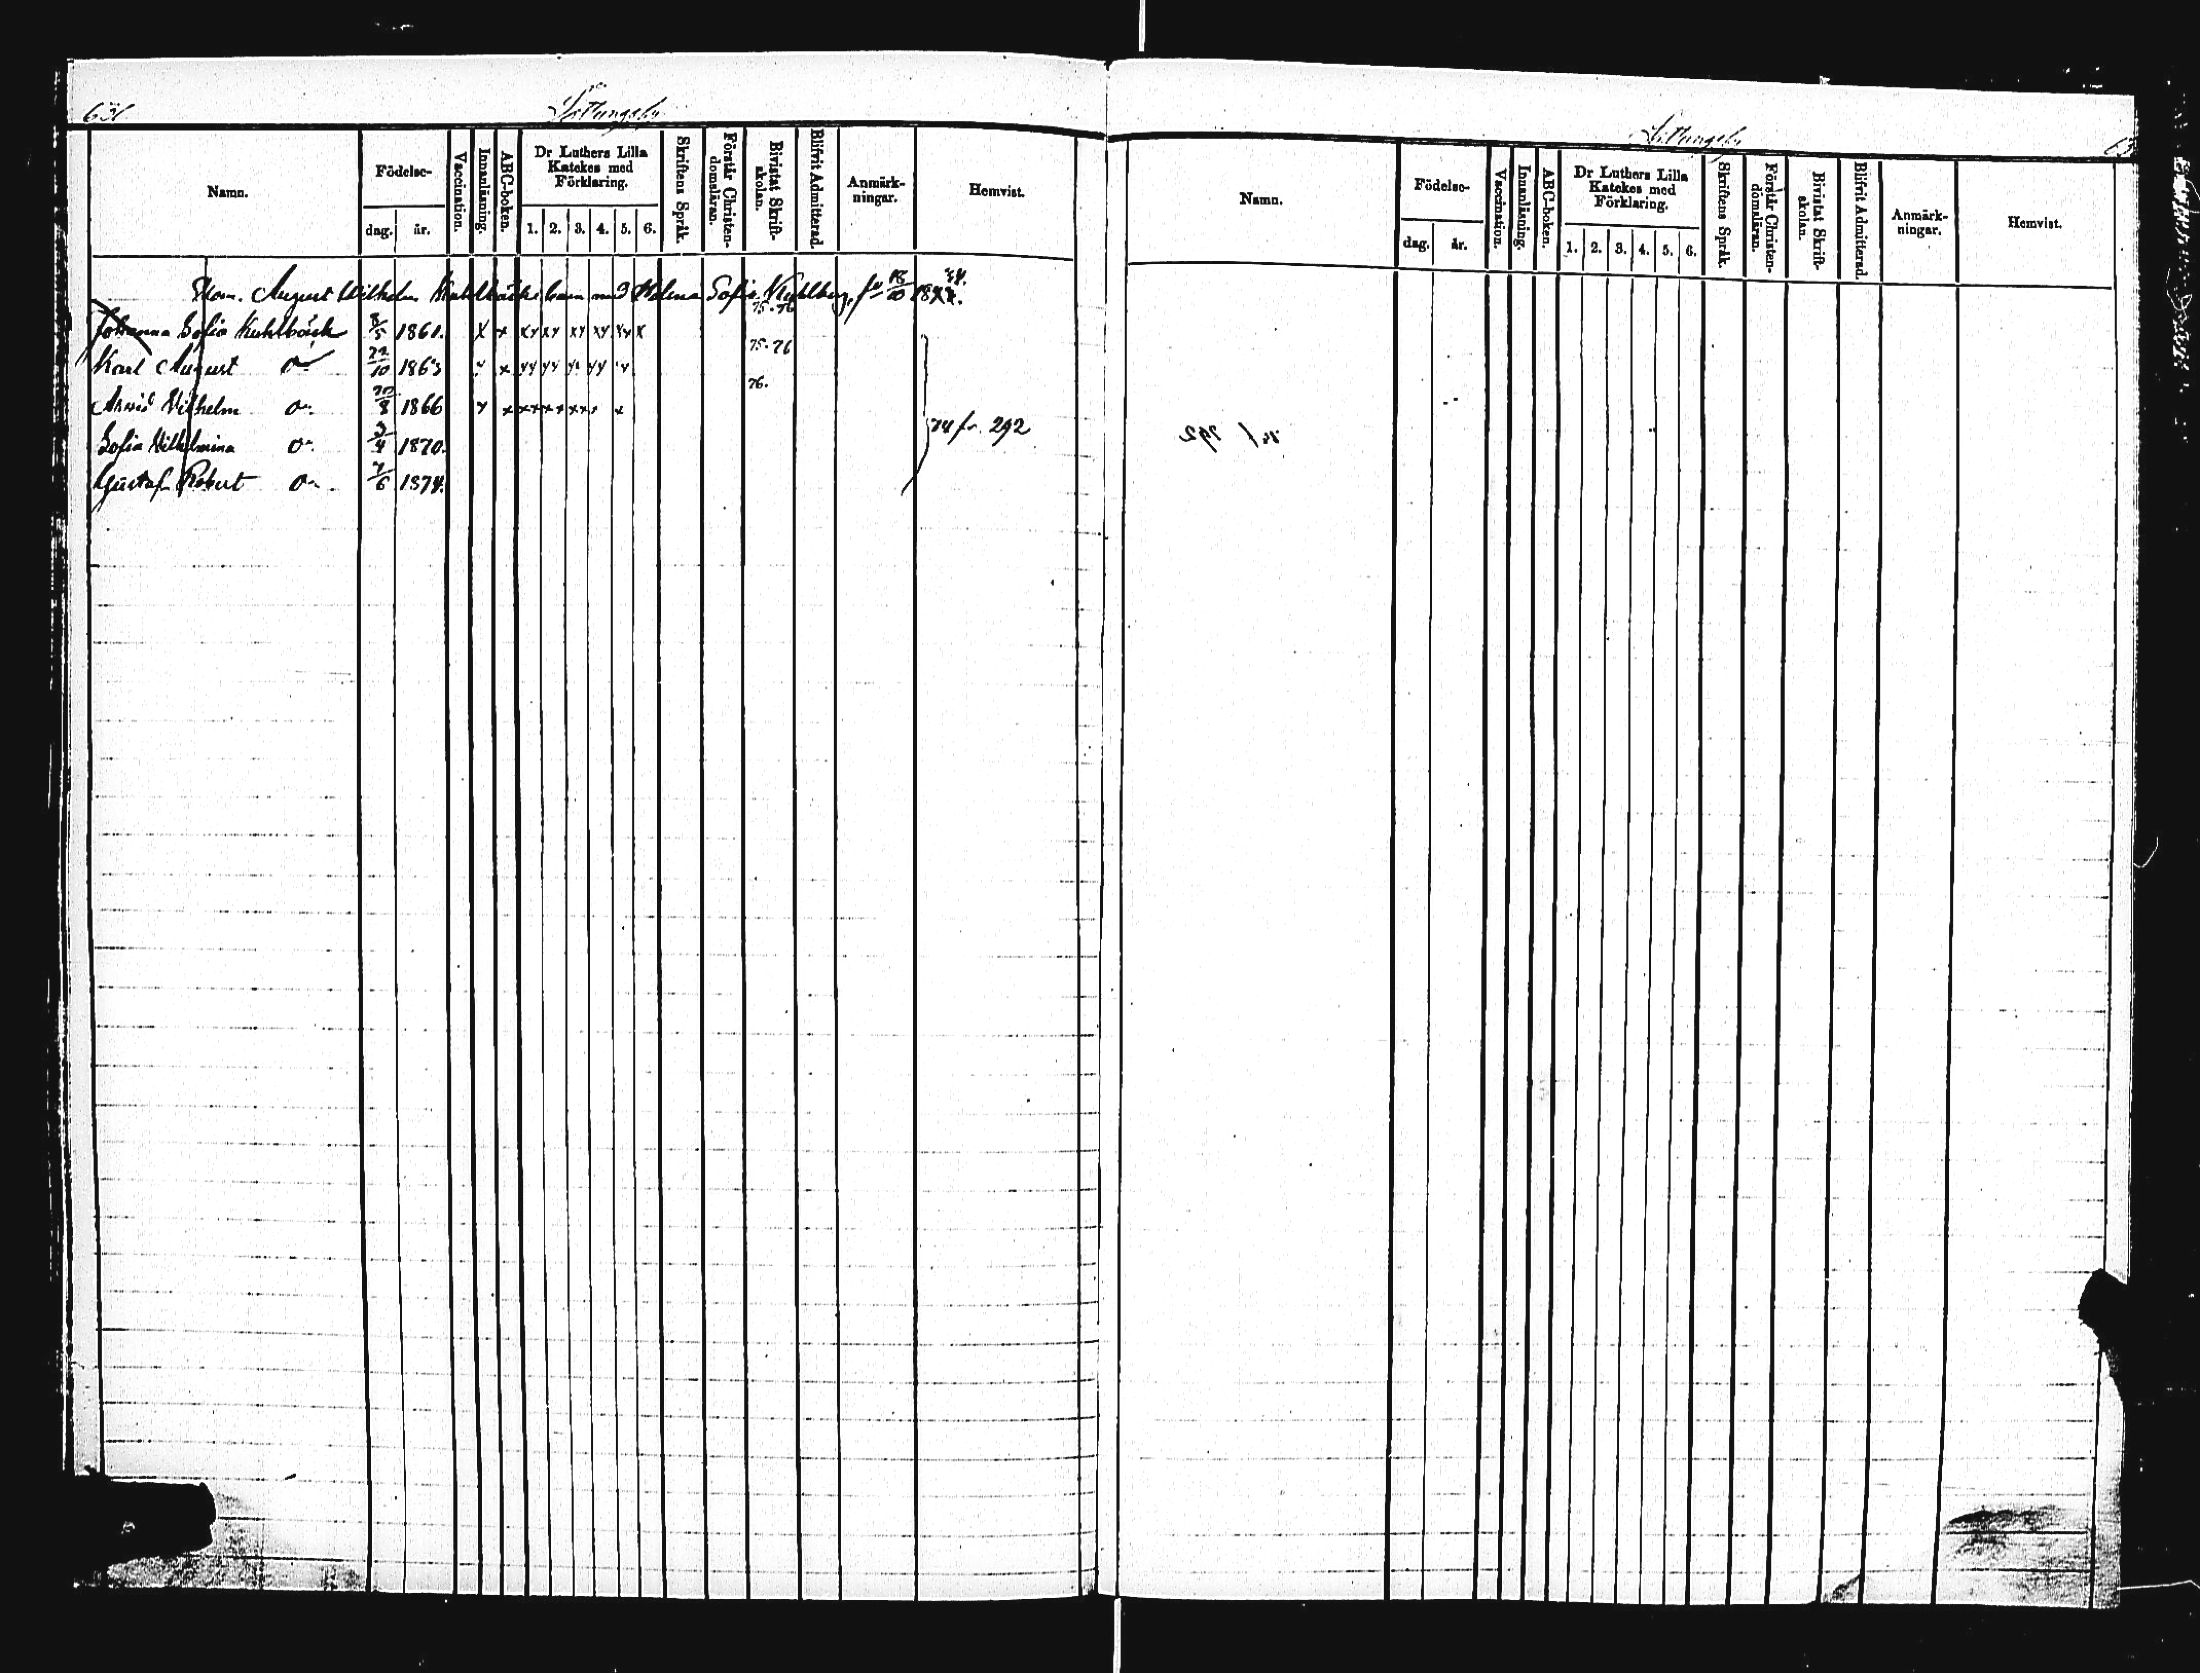 636
Sottungsby
Namn. Födelse- dag. år. Vaccination. Innanläsning. ABC-boken. Dr Luthers Lilla Katekes med Förklaring. 1. 2. 3. 4. 5. 6. Skriftens Språk. Förstår Christendomsläran. Bivistat Skriftskolan. Blifvit Admitterad. Anmärkningar. Hemvist.
August Wilhelm Kuhlbäcks barn med Helena Sofia Kuhlberg, 18/10
Johanna Sofia Kuhlbäck 8/5 1861. x x xx xx xx xx xx x 75-76
Karl August 22/10 1863 x x xx xx xx xx xx 75-76
Arvid Vilhelm 20/8 1866 x x xx xx xxx x 76.
Sofia Vilhelmina 3/4 1870. 74 fr. 292
Gustaf Robert 7/6 1874.
Sottungsby
63
Namn. Födelse- dag. år. Vaccination. Innanläsning. ABC-boken. Dr Luthers Lilla Katekes med Förklaring. 1. 2. 3. 4. 5. 6. Skriftens Språk. Förstår Christendomsläran. Bivistat Skriftskolan. Blifvit Admitterad. Anmärkningar. Hemvist.